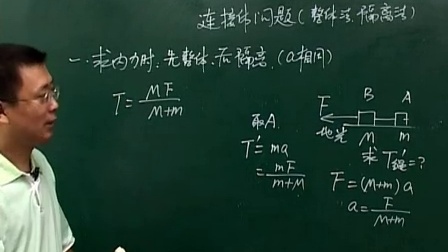 连接体问题(整体法、隔离法)
一.求内力时:先整体、后隔离.(a相同)
T=MF/(M+m)
取A.
T'=ma
=mF/(m+M)
F B A
地光 M m
求T'绳=?
F=(M+m)a
a=F/(M+m)